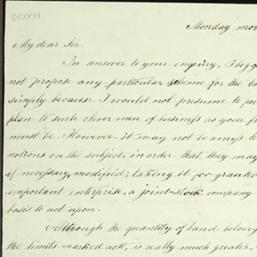 DCXXIII
Monday mor
My dear Sir.
In answer to your enquiry, I beg
not propose any particular scheme for the
simply because I would not presume to
plan to such clever men of business as your
must be. However, it may not be amiss to
notions on the subject, in order that, they may
if necessary, modified; taking it for granted
important enterprise, a joint-stock company
basis to act upon.
Although the quantity of land belong
the limits marked ack, is really much greater,